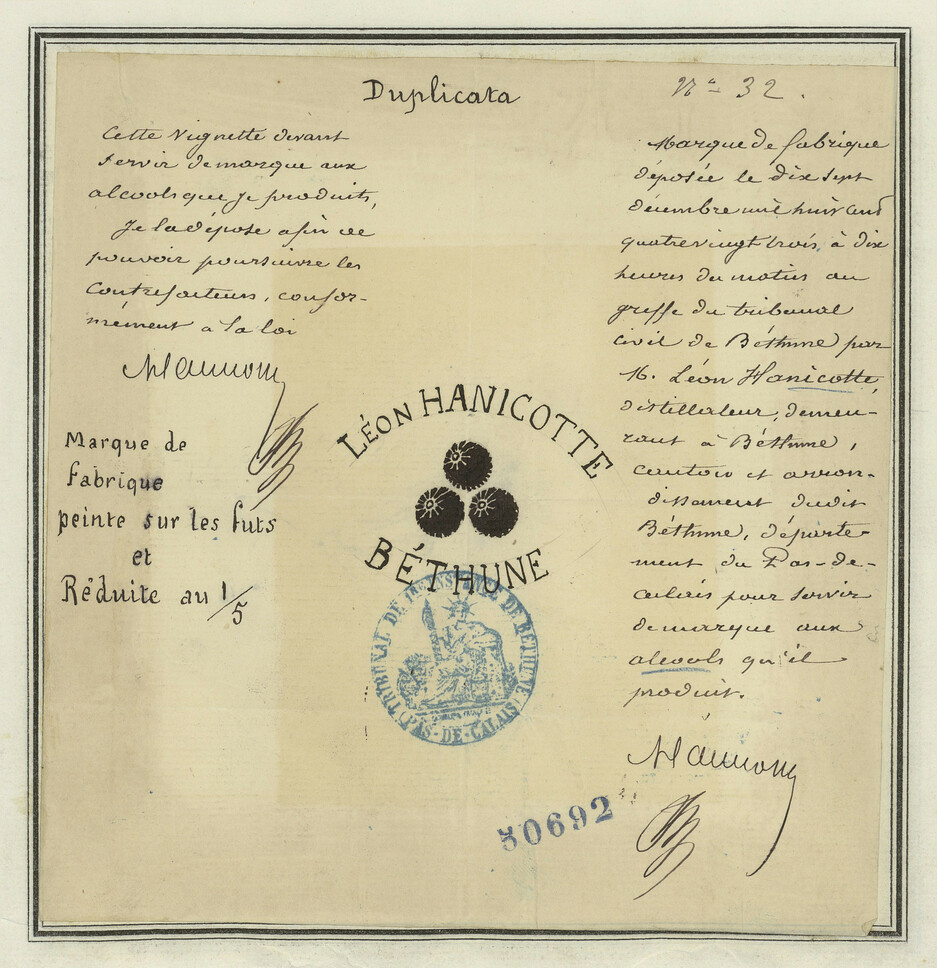 Duplicata
Nº 32.
Cette vignette devant
servir de marque aux
alcools que je produits,
Je la dépose afin de
pouvoir poursuivre les
contrefacteurs, confor-
mément à la loi
Marque de
Fabrique
peinte sur les fûts
et
Réduite au 1/5
LÉON HANICOTTE
BÉTHUNE
TRIBUNAL DE 1ÈRE INSTANCE DE BÉTHUNE
(PAS-DE-CALAIS)
Marque de fabrique
déposée le dix sept
décembre mil huit cent
quatre vingt trois, à dix
heures du matin au
greffe du tribunal
civil de Béthune par
M. Léon Hanicotte,
distillateur, demeu-
rant à Béthune,
canton et arron-
dissement dudit
Béthune, départe-
ment du Pas-de-
Calais pour servir
de marque aux
alcools qu'il
produit.
50692